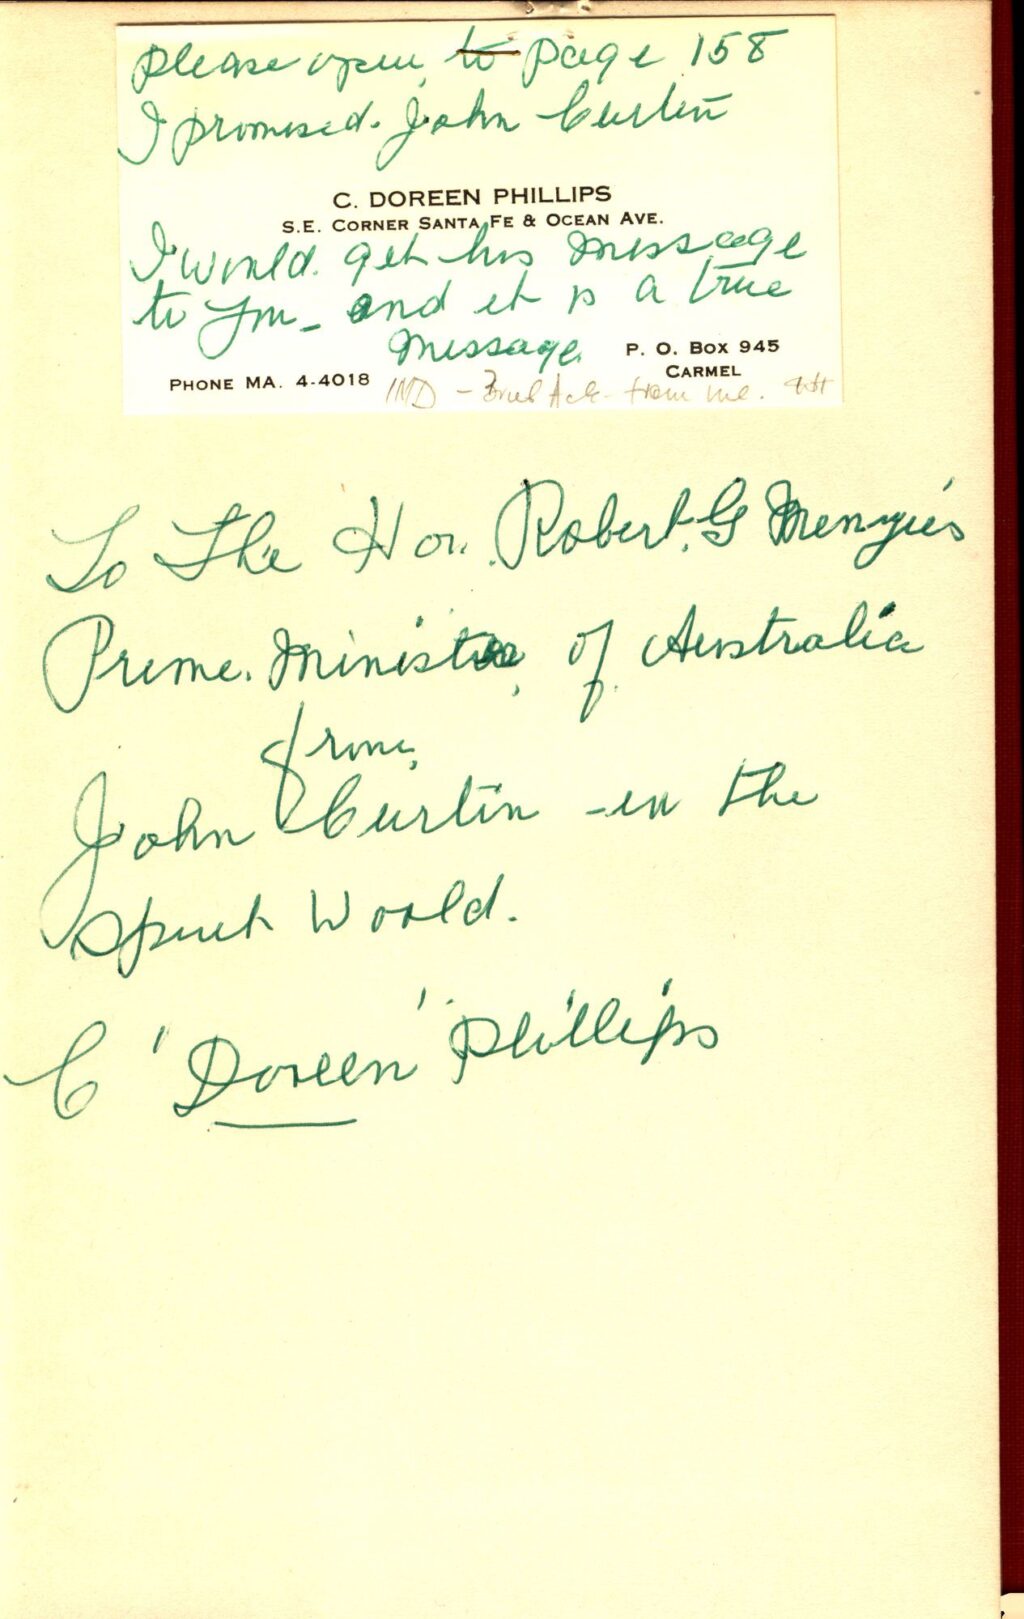 please open to page 158
I promised. John Curtin
C. DOREEN PHILLIPS
S.E. CORNER SANTA FE & OCEAN AVE.
I would. get his message
to you - and it is a true
message.
P. O. BOX 945
CARMEL
PHONE MA. 4-4018
from me.
To The Hon. Robert. G Menzies
Prime. Minister, of Australia
from,
John Curtin - in the
Spirit World.
C 'Doreen' Phillips